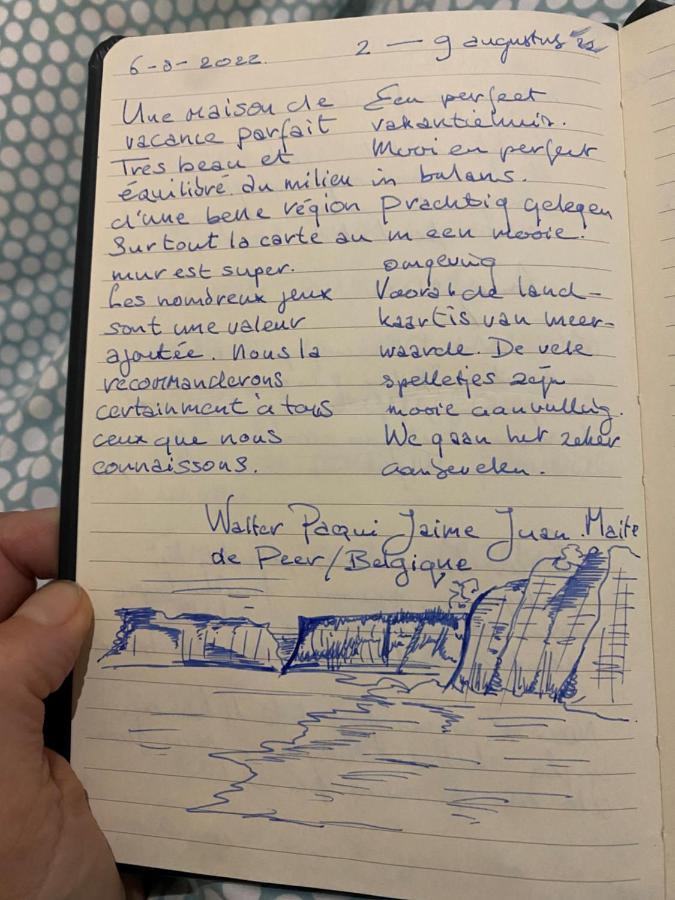 6-8-2022.
2 — 9 augustus '22
Une maison de
vacance parfait
Tres beau et
équilibré du milieu
d'une belle région
Surtout la carte au
mur est super.
Les nombreux jeux
sont une valeur
ajoutée. Nous la
recommanderons
certainment à tous
ceux que nous
connaissons.
Een perfect
vakantiehuis.
Mooi en perfect
in balans.
Prachtig gelegen
in een mooie.
omgeving
Vooral de land-
kaart is van meer-
waarde. De vele
spelletjes zijn
mooie aanvulling.
We gaan het zeker
aanbevelen.
Walter Paqui Jaime Juan Maite
de Peer/Belgique